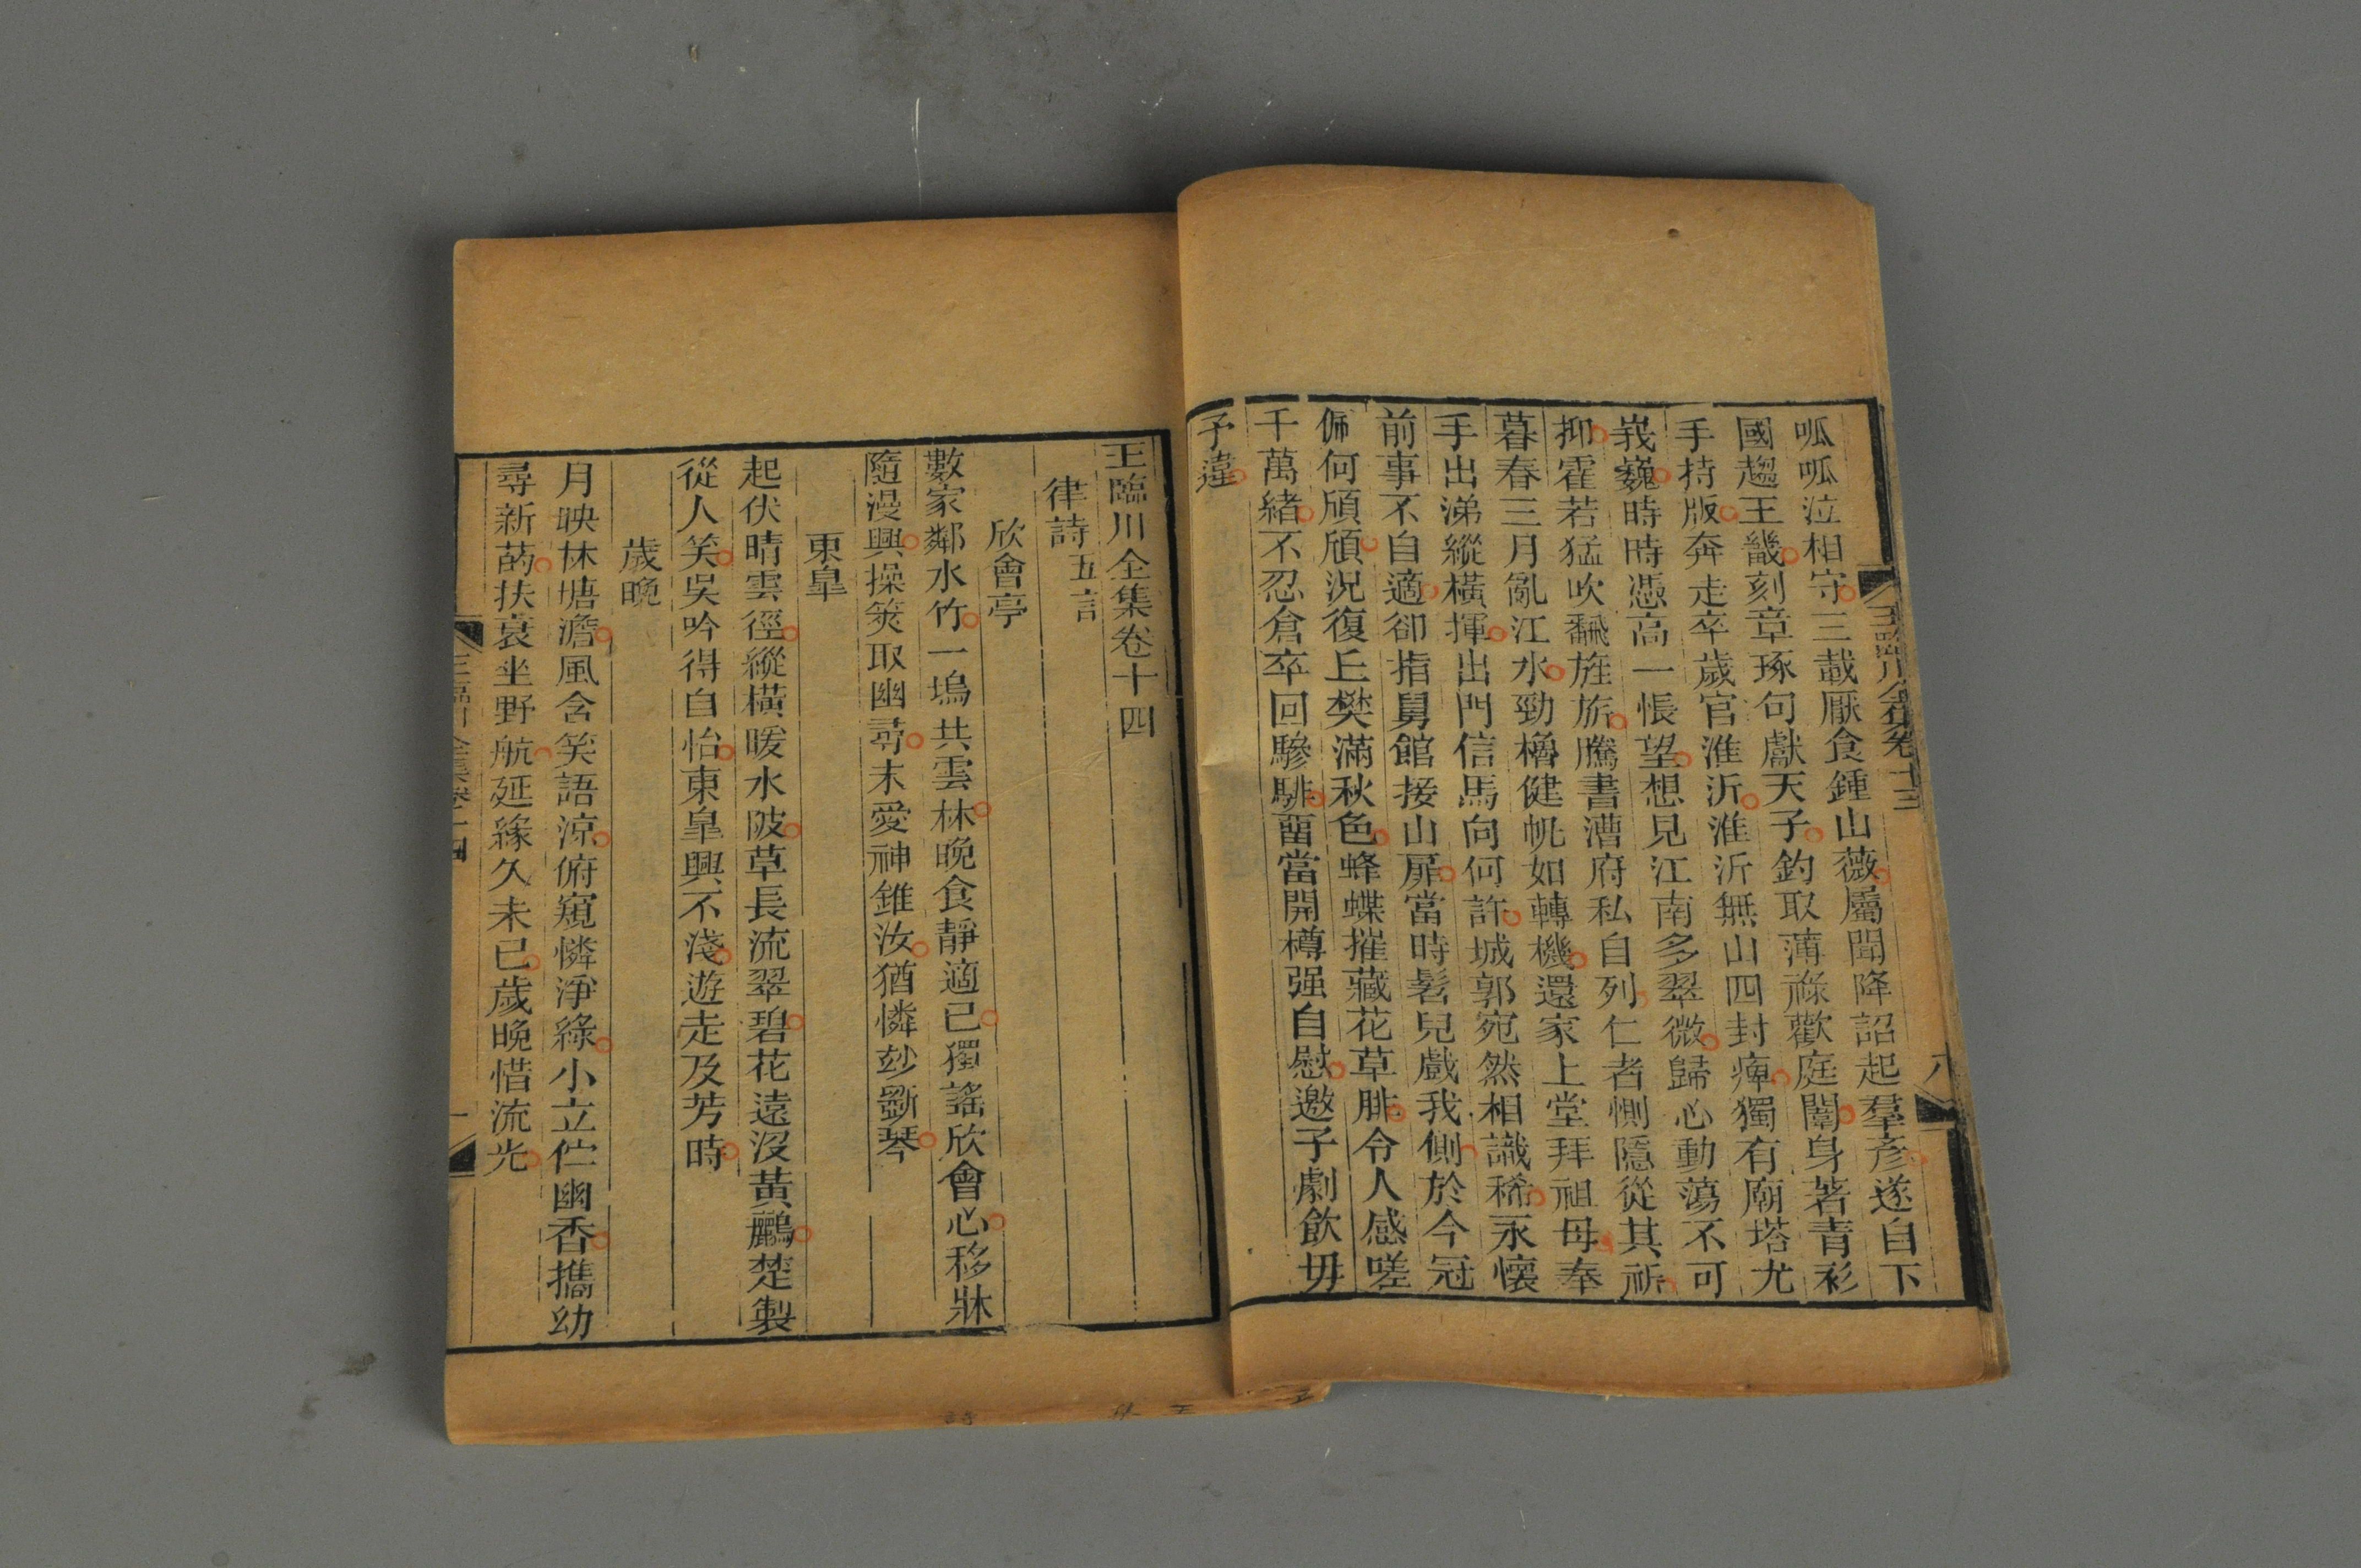 呱呱泣相守三載厭食鍾山薇屬聞降詔起羣彥遂自下
國趨王畿刻章琢句獻天子釣取薄祿歡庭闈身著青衫
手持版奔走卒歲官淮沂淮沂無山四封庳獨有廟塔尤
峩巍時時憑高一悵望想見江南多翠微歸心動蕩不可
抑霍若猛吹飜旌旂騰書漕府私自列仁者惻隱從其祈
暮春三月亂江水勁櫓健帆如轉機還家上堂拜祖母奉
手出涕縱橫揮出門信馬向何許城郭宛然相識稀永懷
前事不自適卻指舅館接山扉當時髫兒戲我側於今冠
佩何頎頎況復丘樊滿秋色蜂蝶摧藏花草腓令人感嗟
千萬緒不忍倉卒回驂騑畱當開樽强自慰邀子劇飲毋
予違
王臨川全集卷十三
八
王臨川全集卷十四
律詩五言
欣會亭
數家鄰水竹一塢共雲林晚食靜適已獨謠欣會心移牀
隨漫興操筴取幽尋未愛神錐汝猶憐玅斲琴
東皐
起伏晴雲徑縱橫暖水陂草長流翠碧花遠沒黃鸝楚製
從人笑吳吟得自怡東皐興不淺遊走及芳時
歲晚
月映林塘澹風含笑語涼俯窺憐淨綠小立佇幽香攜幼
尋新菂扶衰坐野航延緣久未已歲晚惜流光
王臨川全集卷十四
一